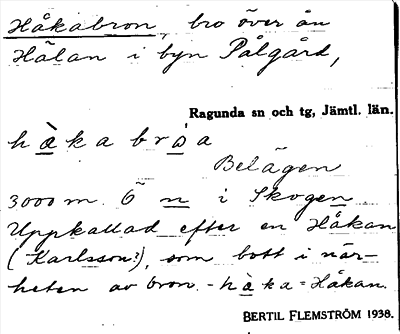 Håkabron, bro över ån
Hälan i byn Pålgård,
Ragunda sn och tg, Jämtl. län.
hàkabròa
Belägen
3000 m. Ö n i Skogen
Uppkallad efter en Håkan
(Karlsson?), som bott i när-
heten av bron. - hàka = Håkan.
BERTIL FLEMSTRÖM 1938.